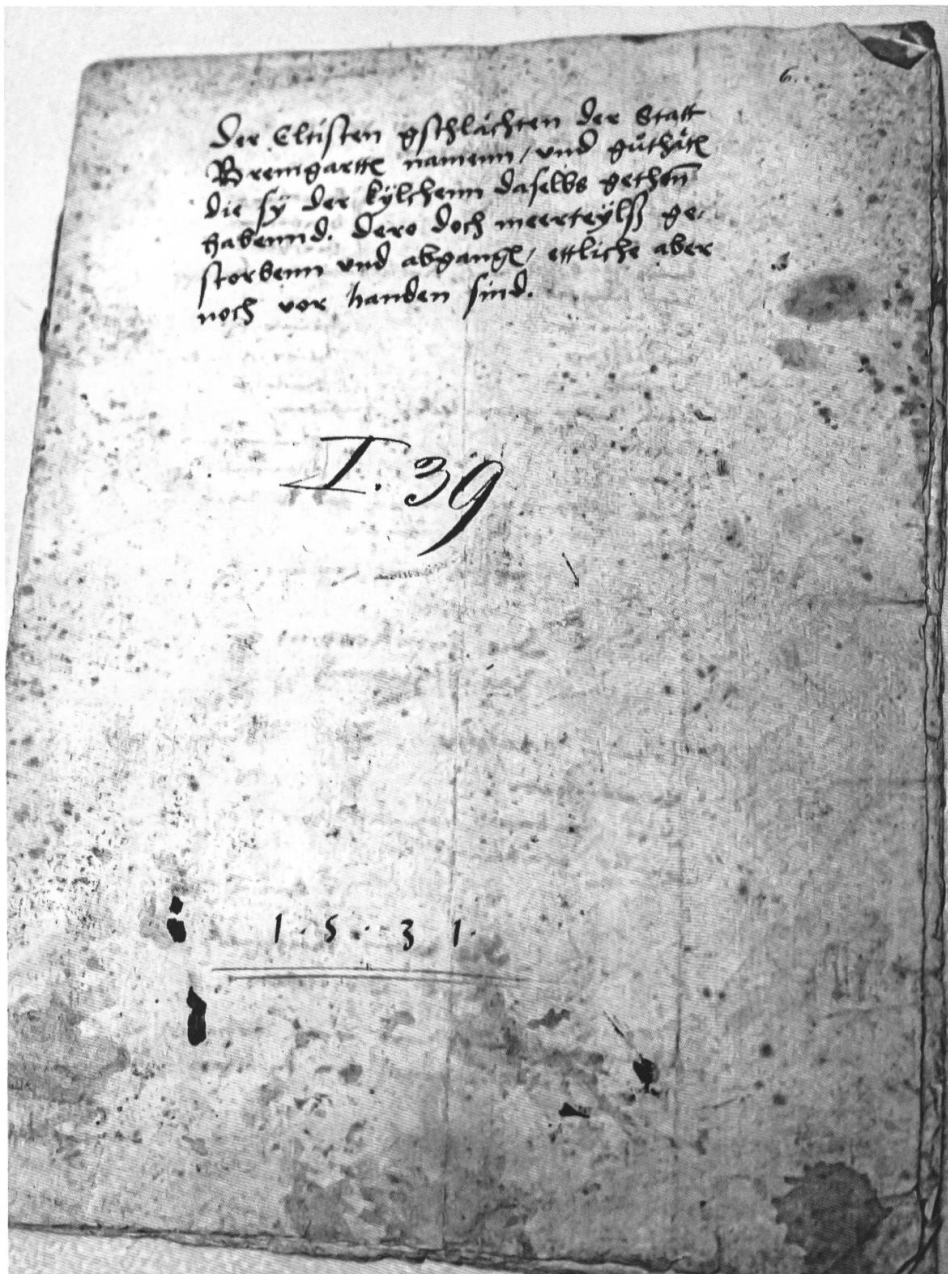 6.
Der Eltisten gschlächten der Statt
Bremgartten namenn / und gůthäten
die sÿ der kÿlchenn daselbs gethon̄
habennd. Dero doch meerteÿls ge-
storbenn und abgangen / ettliche aber
noch vor handen sind.
I. 39
1 · 5 · 3 1 ·